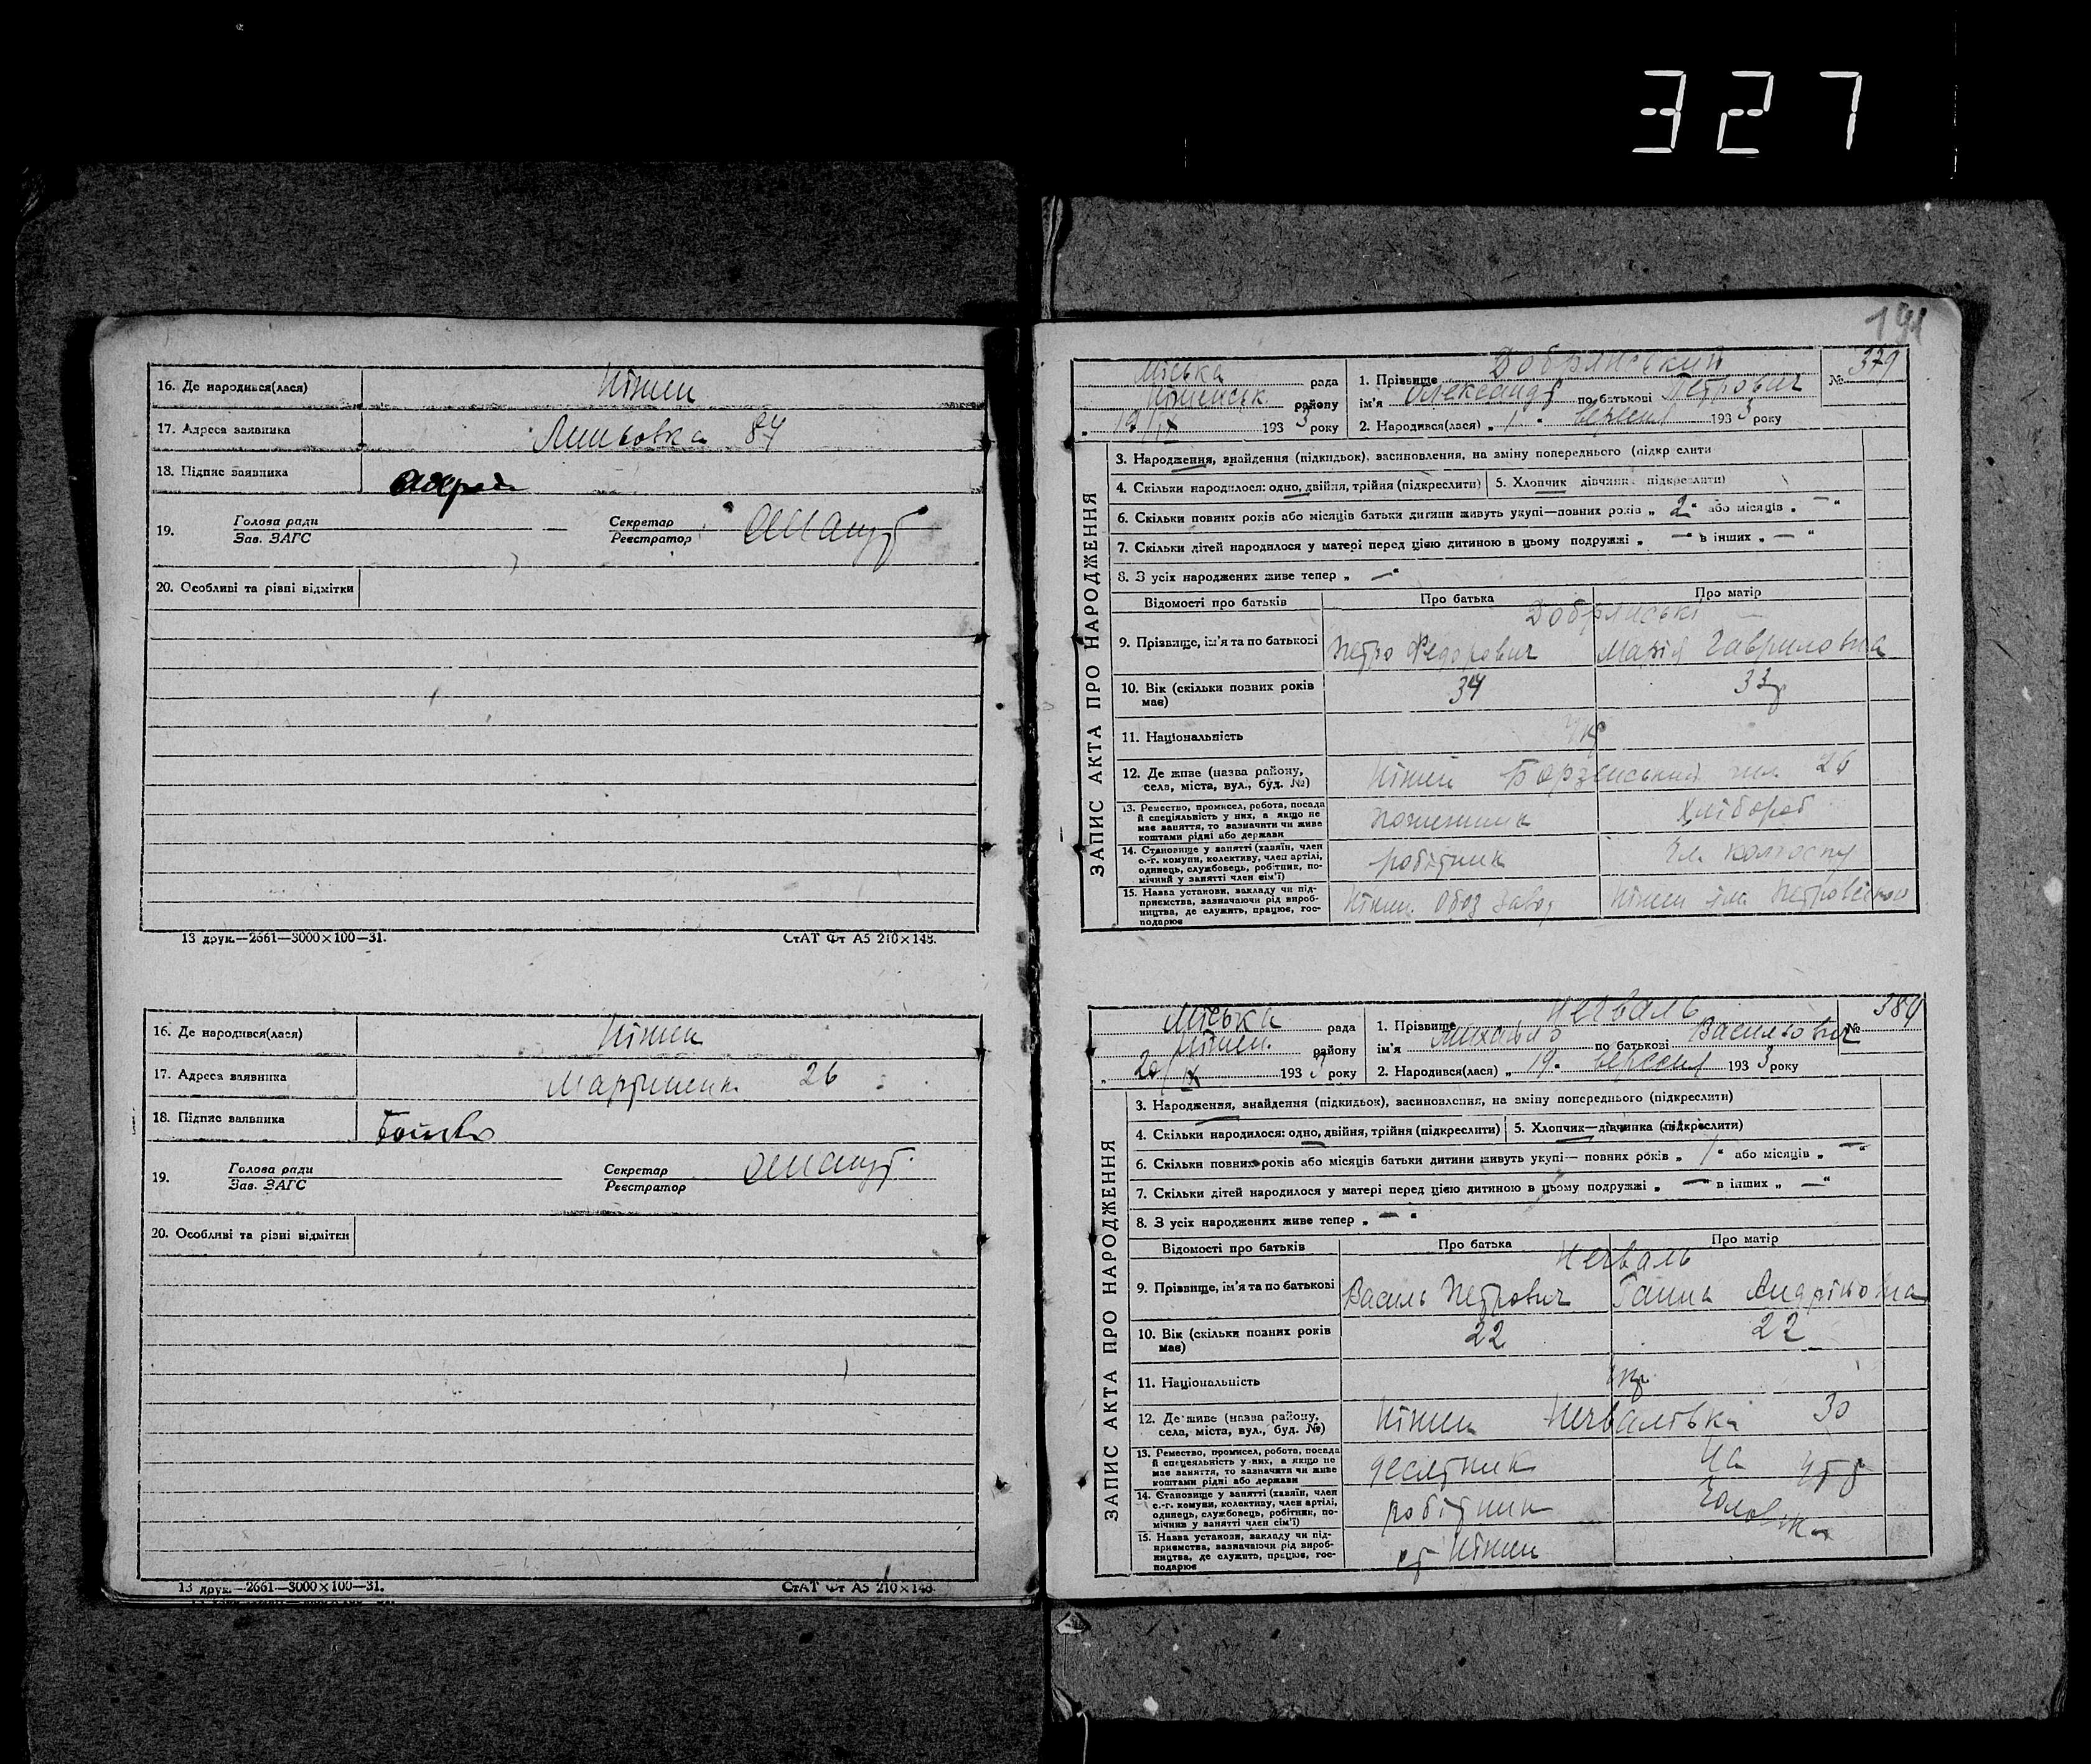 327
16. Де народився(лася) Ніжен
17. Адреса заявника 84
18. Підпис заявника
19. Голова ради Секретар
Зав. ЗАГС Реєстратор
20. Особливі та різні відмітки
13 друк.—2661—3000×100—31. СтАТ Фт А5 210×148.
16. Де народився(лася) Ніжен
17. Адреса заявника 26
18. Підпис заявника
19. Голова ради Секретар
Зав. ЗАГС Реєстратор
20. Особливі та різні відмітки
13 друк.—2661—3000×100—31. СтАТ Фт А5 210×148.
191
ЗАПИС АКТА ПРО НАРОДЖЕННЯ
Міська рада
Ніженськ району
„ 19/IX 1933 року
1. Прізвище Добрянський № 379
ім'я Олександр по батькові Петрович
2. Народився(лася) „ 1 " вересня 1933 року
3. Народження, знайдення (підкидьок), засиновлення, на зміну попереднього (підкреслити
4. Скільки народилося: одно, двійня, трійня (підкреслити) 5. Хлопчик дівчинка підкреслити)
6. Скільки повних років або місяців батьки дитини живуть укупі—повних років „ 2 " або місяців „ — "
7. Скільки дітей народилося у матері перед цією дитиною в цьому подружжі „ — " в інших „ — "
8. З усіх народжених живе тепер „ — "
Відомості про батьків Про батька Про матір
Добрянські
9. Прізвище, ім'я та по батькові Петро Федорович Марія Гавриловна
10. Вік (скільки повних років має) 34 33р
11. Національність Укр
12. Де живе (назва району, села, міста, вул., буд. №) Ніжен Борзенський шл. 26
13. Ремество, промисел, робота, посада й спеціяльність у них, а якщо не має заняття, то зазначити чи живе коштами рідні або держави Хлібороб
14. Становище у занятті (хазяїн, член с.-г. комуни, колективу, член артілі, одинець, службовець, робітник, помічний у занятті член сім'ї) робітник Чл. колгоспу
15. Назва установи, закладу чи підприємства, зазначаючи рід виробництва, де служить, працює, господарює Ніжен. Обоз завод Ніжен ім. Петровського
ЗАПИС АКТА ПРО НАРОДЖЕННЯ
Міська рада
Ніжен. району
„ 20/IX 1933 року
1. Прізвище Нечваль №
ім'я Михайло по батькові Васильович
2. Народився(лася) „ 19 " вересня 1933 року
3. Народження, знайдення (підкидьок), засиновлення, на зміну попереднього (підкреслити)
4. Скільки народилося: одно, двійня, трійня (підкреслити) 5. Хлопчик—дівчинка (підкреслити)
6. Скільки повних років або місяців батьки дитини живуть укупі— повних років „ 1 " або місяців „ — "
7. Скільки дітей народилося у матері перед цією дитиною в цьому подружжі „ — " в інших „ — "
8. З усіх народжених живе тепер „ — "
Відомості про батьків Про батька Про матір
Нечваль
9. Прізвище, ім'я та по батькові Василь Петрович Ганна Андріївна
10. Вік (скільки повних років має) 22 22
11. Національність Укр
12. Де живе (назва району, села, міста, вул., буд. №) Ніжен Нечвалівка 30
13. Ремество, промисел, робота, посада й спеціяльність у них, а якщо не має заняття, то зазначити чи живе коштами рідні або держави десятник На утр
14. Становище у занятті (хазяїн, член с.-г. комуни, колективу, член артілі, одинець, службовець, робітник, помічник у занятті член сім'ї) робітник
15. Назва установи, закладу чи підприємства, зазначаючи рід виробництва, де служить, працює, господарює ст Ніжен